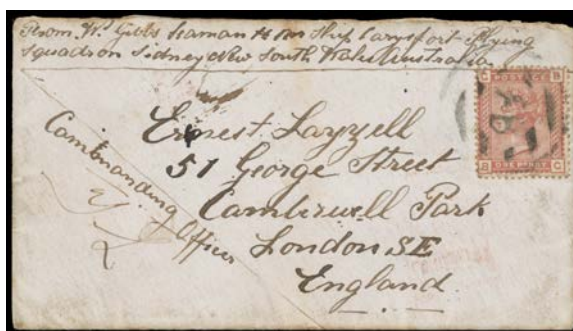 From Wm Gibbs Seaman H M Ship Carysfort Flying
Squadron Sidney New South Wales Australia
Commanding Officer
Ernest Layzell
51 George Street
Camberwell Park
London SE
England
C B
POSTAGE
ONE PENNY
B C